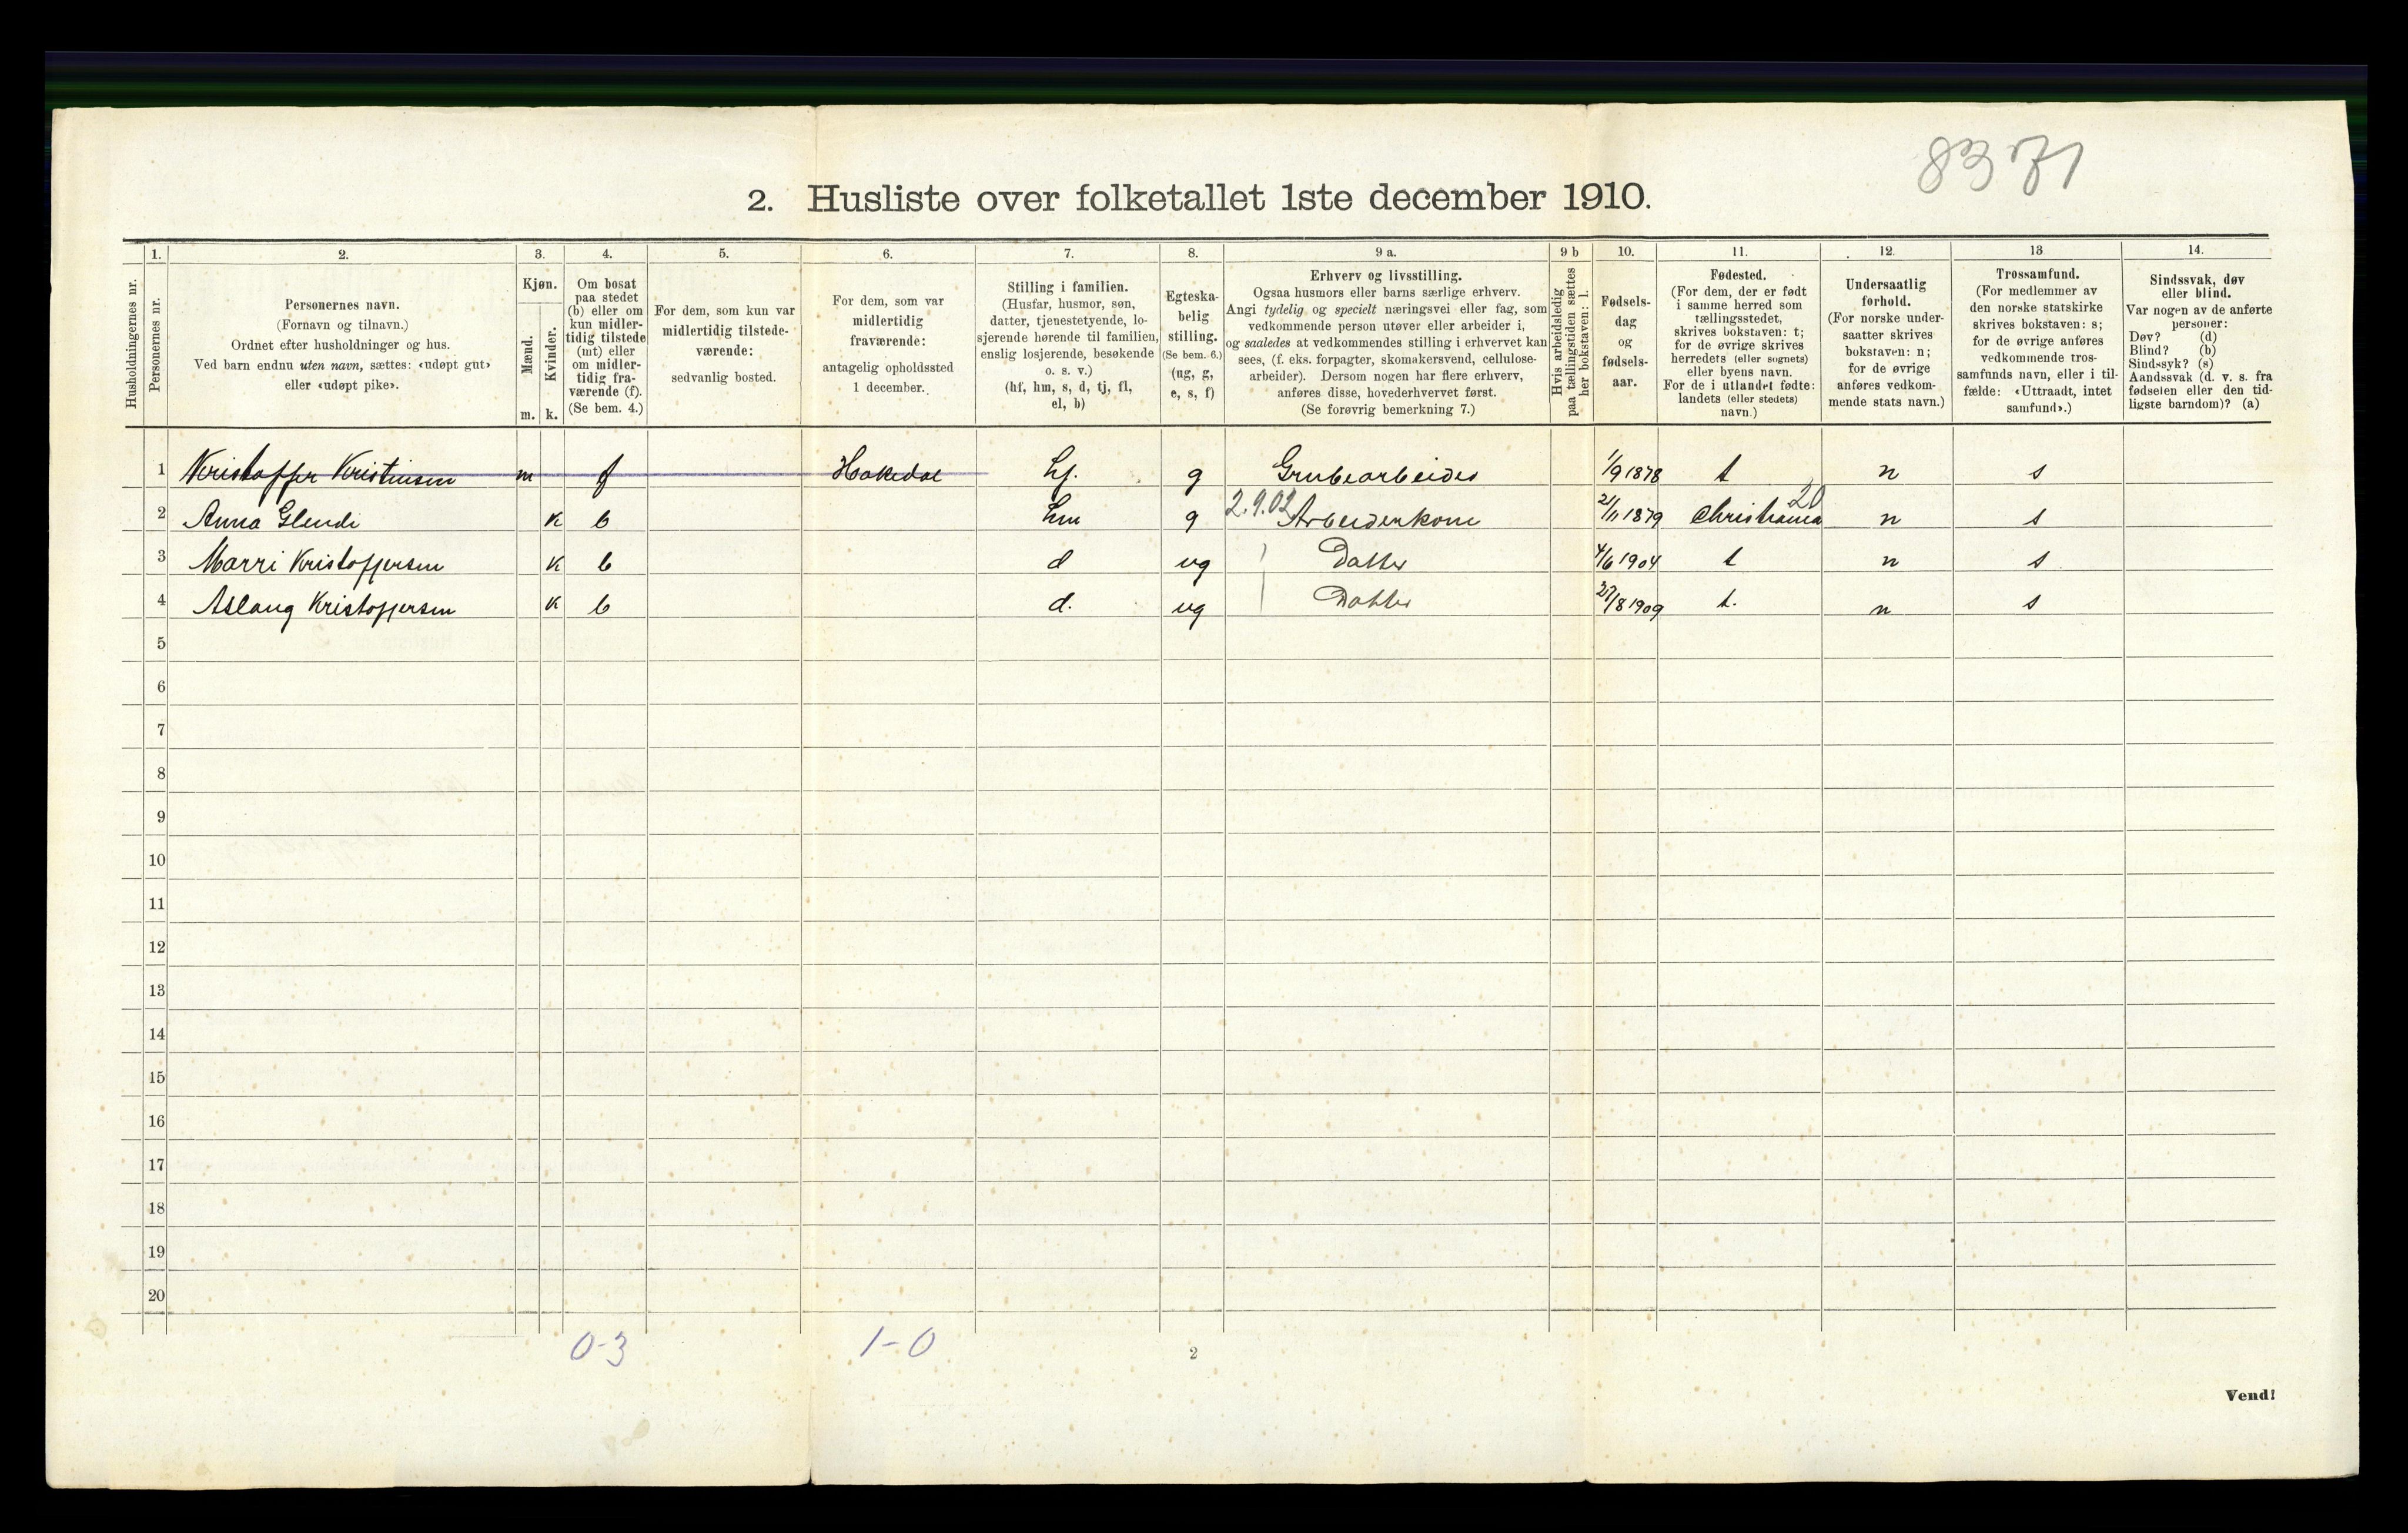 8371
2. Husliste over folketallet 1ste december 1910.
Husholdningernes nr.
1.
Personernes nr.
2.
Personernes navn.
(Fornavn og tilnavn.)
Ordnet efter husholdninger og hus.
Ved barn endnu uten navn, sættes: «udøpt gut»
eller «udøpt pike».
3.
Kjøn.
Mænd.
m.
Kvinder.
k.
4.
Om bosat
paa stedet
(b) eller om
kun midler-
tidig tilstede
(mt) eller
om midler-
tidig fra-
værende (f).
(Se bem. 4.)
5.
For dem, som kun var
midlertidig tilstede-
værende:
sedvanlig bosted.
6.
For dem, som var
midlertidig
fraværende:
antagelig opholdssted
1 december.
7.
Stilling i familien.
(Husfar, husmor, søn,
datter, tjenestetyende, lo-
sjerende hørende til familien,
enslig losjerende, besøkende
o. s. v.)
(hf, hm, s, d, tj, fl,
el, b)
8.
Egteska-
belig
stilling.
(Se bem. 6.)
(ug, g,
e, s, f)
9 a.
Erhverv og livsstilling.
Ogsaa husmors eller barns særlige erhverv.
Angi tydelig og specielt næringsvei eller fag, som
vedkommende person utøver eller arbeider i,
og saaledes at vedkommendes stilling i erhvervet kan
sees, (f. eks. forpagter, skomakersvend, cellulose-
arbeider). Dersom nogen har flere erhverv,
anføres disse, hovederhvervet først.
(Se forøvrig bemerkning 7.)
9 b
Hvis arbeidsledig
paa tællingstiden sættes
her bokstaven: l.
10.
Fødsels-
dag
og
fødsels-
aar.
11.
Fødested.
(For dem, der er født
i samme herred som
tællingsstedet,
skrives bokstaven: t;
for de øvrige skrives
herredets (eller sognets)
eller byens navn.
For de i utlandet fødte:
landets (eller stedets)
navn.)
12.
Undersaatlig
forhold.
(For norske under-
saatter skrives
bokstaven: n;
for de øvrige
anføres vedkom-
mende stats navn.)
13
Trossamfund.
(For medlemmer av
den norske statskirke
skrives bokstaven: s;
for de øvrige anføres
vedkommende tros-
samfunds navn, eller i til-
fælde: «Uttraadt, intet
samfund».)
14.
Sindssvak, døv
eller blind.
Var nogen av de anførte
personer:
Døv? (d)
Blind? (b)
Sindssyk? (s)
Aandssvak (d. v. s. fra
fødselen eller den tid-
ligste barndom)? (a)
1 Kristoffer Kristinsen m f Hakedal hf. g Grubearbeider 1/9 1878 t n s
2 Anna Glendi k b hm g 2.9.02 Arbeiderkone 21/11 1879 Christiania 20 n s
3 Marri Kristoffersen k b d ug Datter 4/6 1904 t n s
4 Aslaug Kristoffersen k b d. ug Datter 27/8 1909 t. n s
5
6
7
8
9
10
11
12
13
14
15
16
17
18
19
20
0-3 1-0
2
Vend!